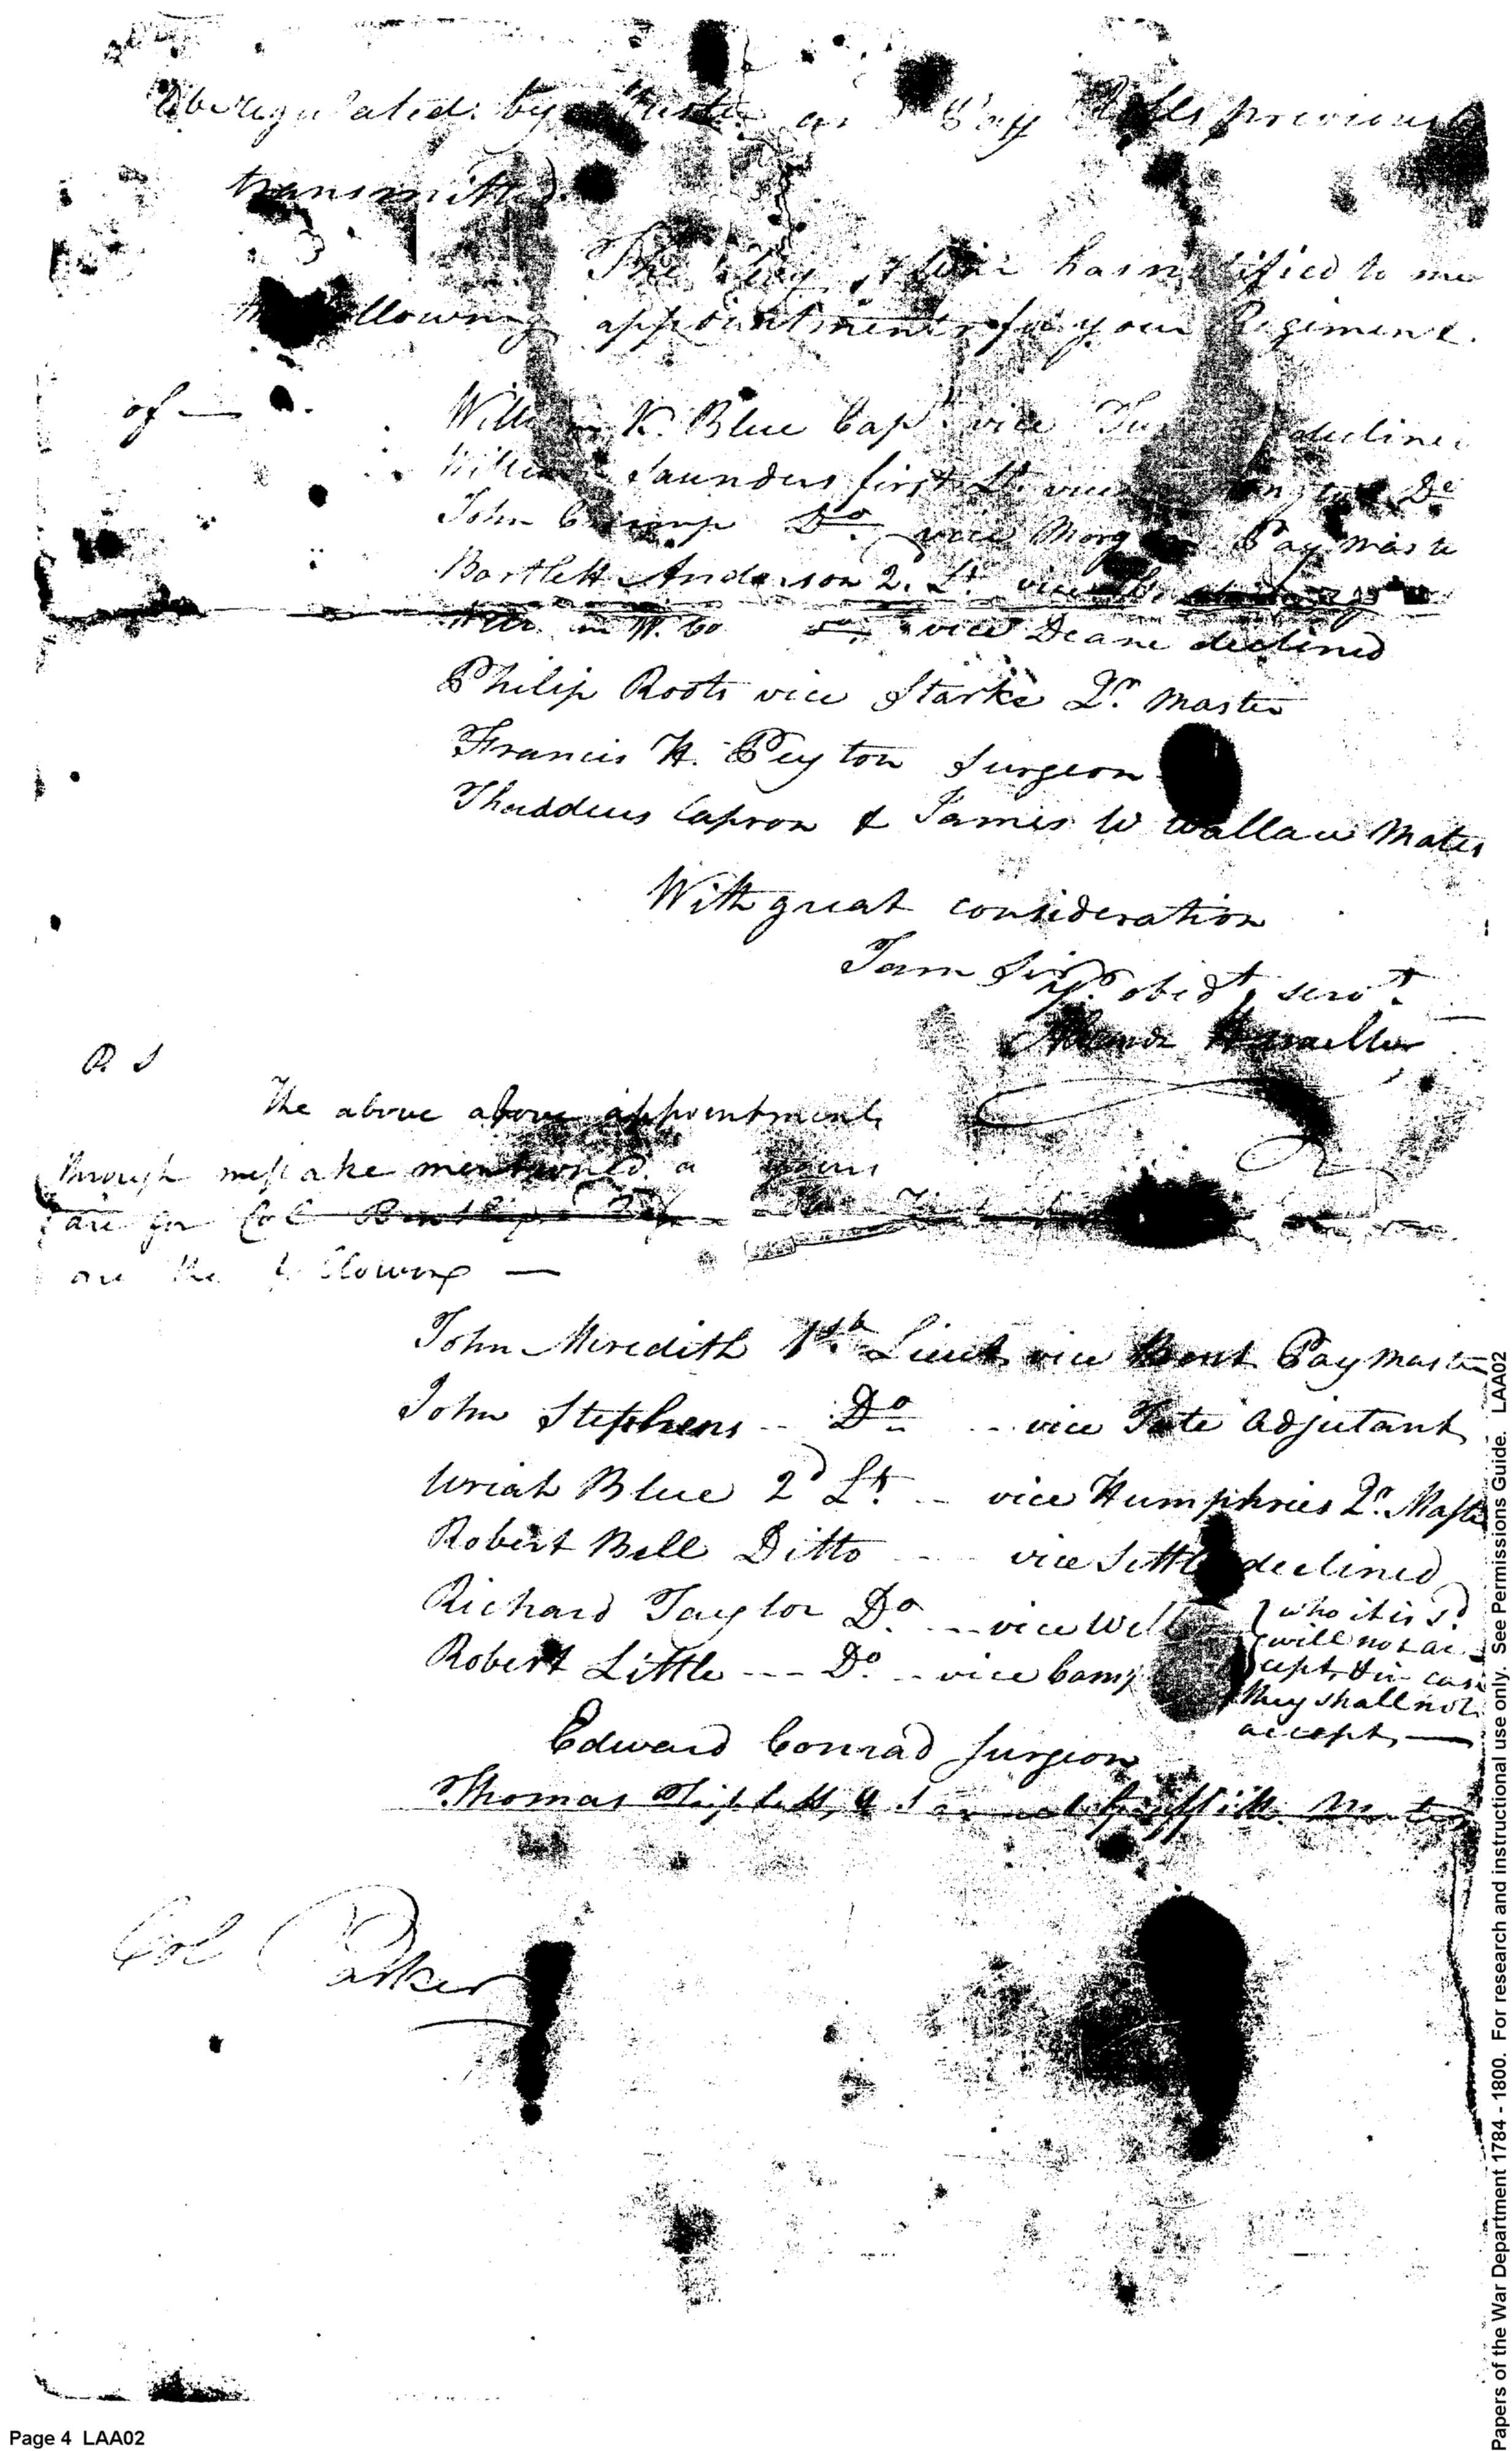 be regulated by Muster and Pay Rolls previously
transmitted.
The Secy of War has notified to me
the following appointments for your Regiment.
of —
William K. Blue Capt. vice declined
William Saunders first Lt. vice Do
John Crump Do. vice Morgan Pay Maste
Bartlett Anderson 2d. Lt. vice
W. Co Do vice Deane declined
Philip Roots vice Starke Qr. Master
Francis H. Peyton Surgeon
Thaddeus Capron & James W Wallace Mates
With great consideration
I am Sir
Yr. obedt. servt.
Alexander Hamilton
P. S
The above above appointments
through misstake mentioned as yours
are for Col Bentley's
are the following —
John Meredith 1st. Lieut vice Brent Pay Master
John Stephens -- Do -- vice Tate Adjutant
Uriah Blue 2d Lt. -- vice Humphries Qr. Master
Robert Bell Ditto --- vice Settle declined
Richard Taylor Do. --- vice Will
Robert Little --- Do. -- vice Camp
who it is sd
will not ac
cept, & in case
they shall not
accept, —
Edward Conrad Surgeon
Thomas Triplett, & Griffith Mates
Col Parker
Page 4 LAA02
Papers of the War Department 1784 - 1800. For research and instructional use only. See Permissions Guide. LAA02